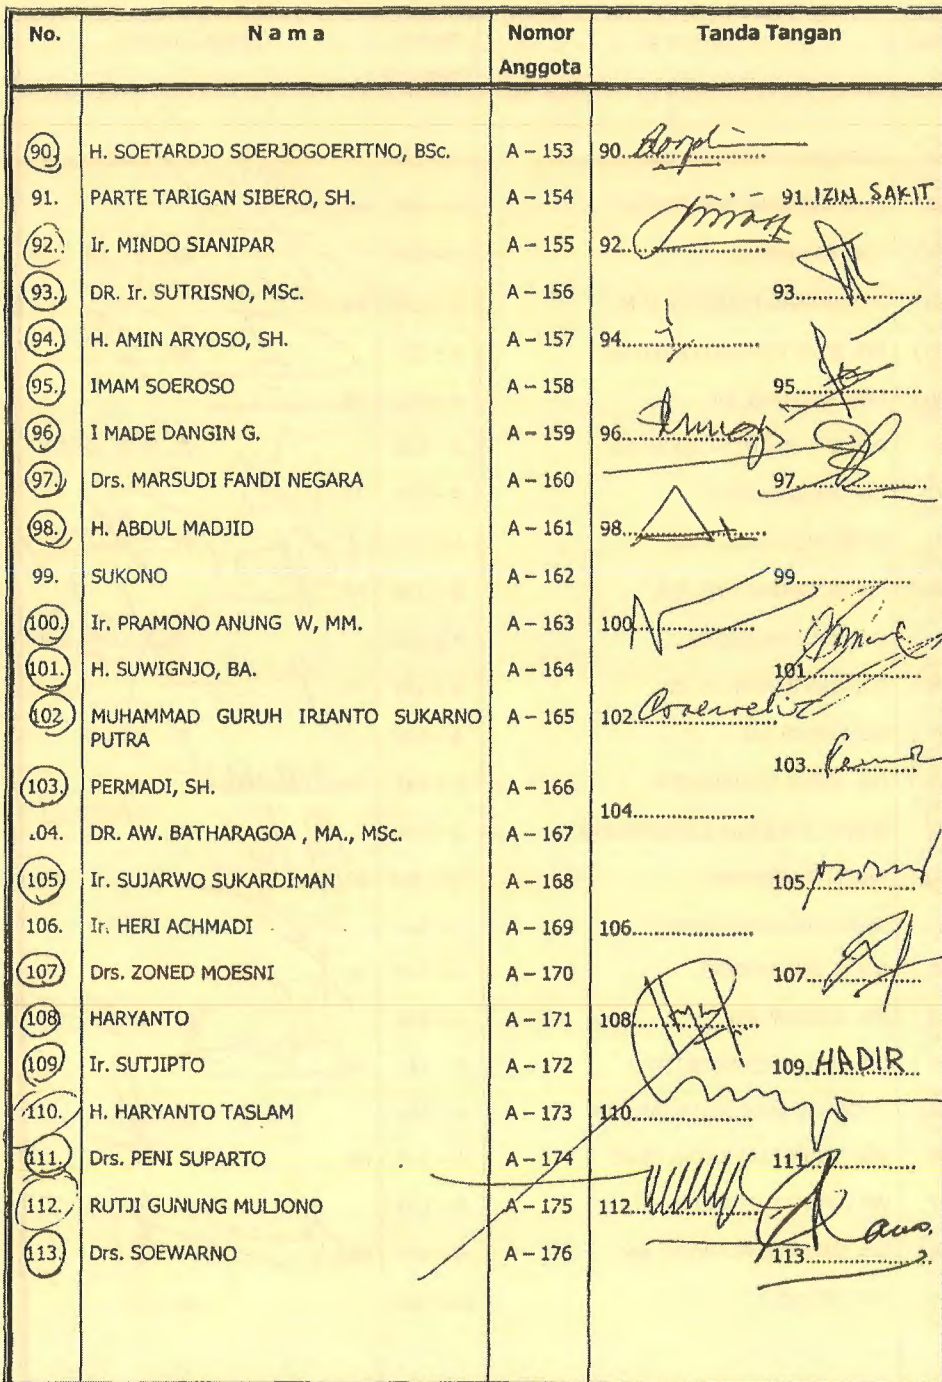 No. Nama Nomor Anggota Tanda Tangan
90. H. SOETARDJO SOERJOGOERITNO, BSc. A – 153 90.
91. PARTE TARIGAN SIBERO, SH. A – 154 91. IZIN SAKIT
92. Ir. MINDO SIANIPAR A – 155 92.
93. DR. Ir. SUTRISNO, MSc. A – 156 93.
94. H. AMIN ARYOSO, SH. A – 157 94.
95. IMAM SOEROSO A – 158 95.
96 I MADE DANGIN G. A – 159 96.
97. Drs. MARSUDI FANDI NEGARA A – 160 97.
98. H. ABDUL MADJID A – 161 98.
99. SUKONO A – 162 99.
100. Ir. PRAMONO ANUNG W, MM. A – 163 100
101. H. SUWIGNJO, BA. A – 164 101
102 MUHAMMAD GURUH IRIANTO SUKARNO A – 165 102
PUTRA
103. PERMADI, SH. A – 166 103.
.04. DR. AW. BATHARAGOA , MA., MSc. A – 167 104.
105 Ir. SUJARWO SUKARDIMAN A – 168 105
106. Ir. HERI ACHMADI A – 169 106.
107 Drs. ZONED MOESNI A – 170 107.
108 HARYANTO A – 171 108
109 Ir. SUTJIPTO A – 172 109 HADIR
110. H. HARYANTO TASLAM A – 173 110.
111. Drs. PENI SUPARTO A – 174 111
112. RUTJI GUNUNG MULJONO A – 175 112
113. Drs. SOEWARNO A – 176 113